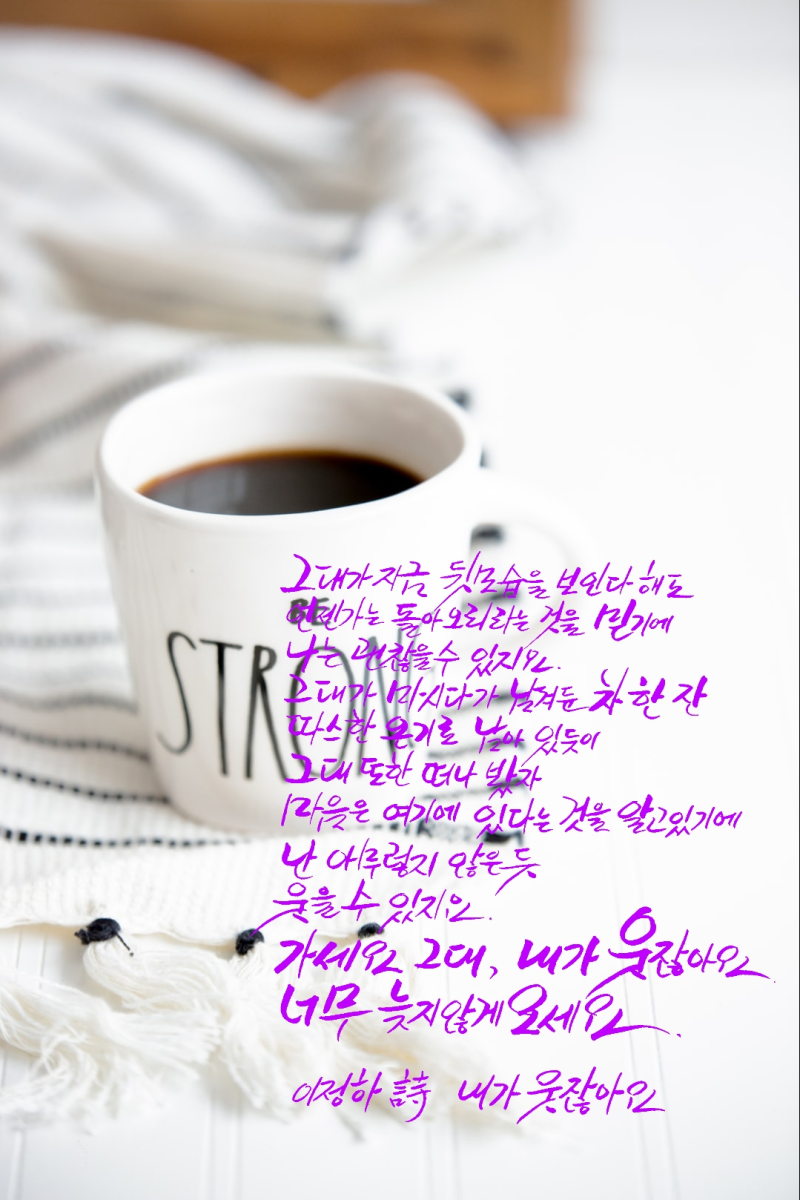 BE
STRONG
그대가 지금 뒷모습을 보인다 해도
언젠가는 돌아오리라는 것을 믿기에
나는 괜찮을 수 있지요.
그대가 마시다가 남겨둔 차 한 잔
따스한 온기로 남아 있듯이
그대 또한 떠나 봤자
마음은 여기에 있다는 것을 알고있기에
난 아무렇지 않은 듯
웃을 수 있지요.
가세요 그대, 내가 웃잖아요.
너무 늦지않게 오세요.
이정하 詩 내가 웃잖아요